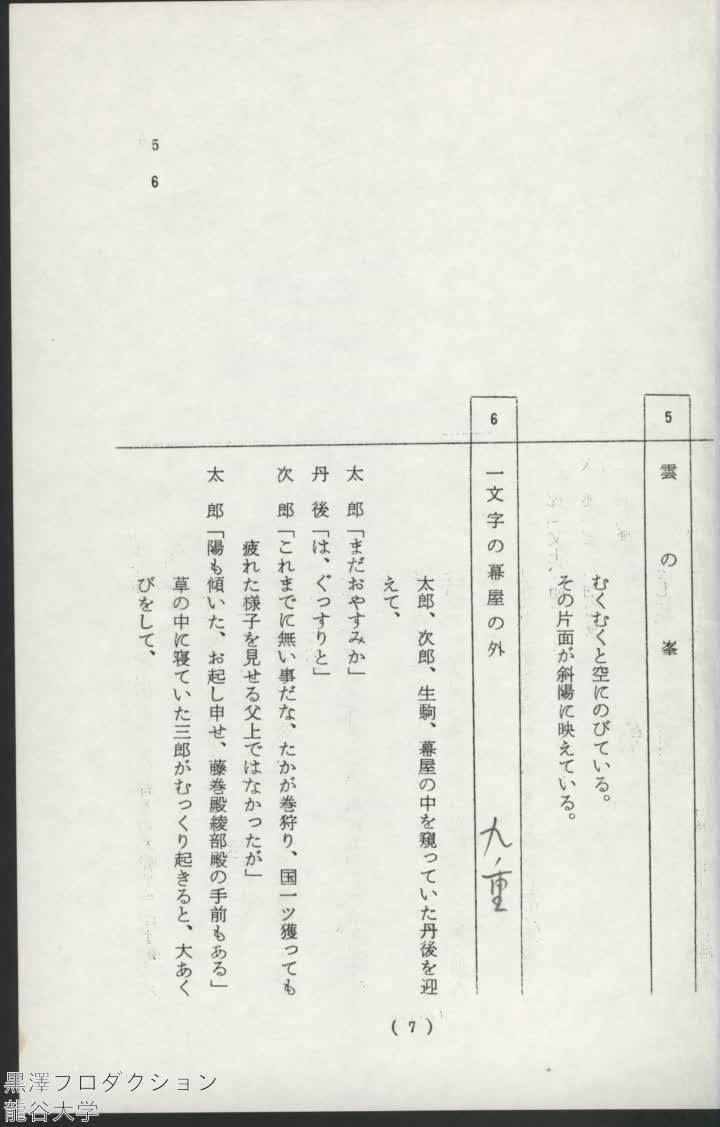 5
6
5
雲の峯
むくむくと空にのびている。
その片面が斜陽に映えている。
6
一文字の幕屋の外
九重
太郎、次郎、生駒、幕屋の中を窺っていた丹後を迎
えて、
太郎「まだおやすみか」
丹後「は、ぐっすりと」
次郎「これまでに無い事だな、たかが巻狩り、国一ツ獲っても
疲れた様子を見せる父上ではなかったが」
太郎「陽も傾いた、お起し申せ、藤巻殿綾部殿の手前もある」
草の中に寝ていた三郎がむっくり起きると、大あく
びをして、
(7)
黒澤プロダクション
龍谷大学